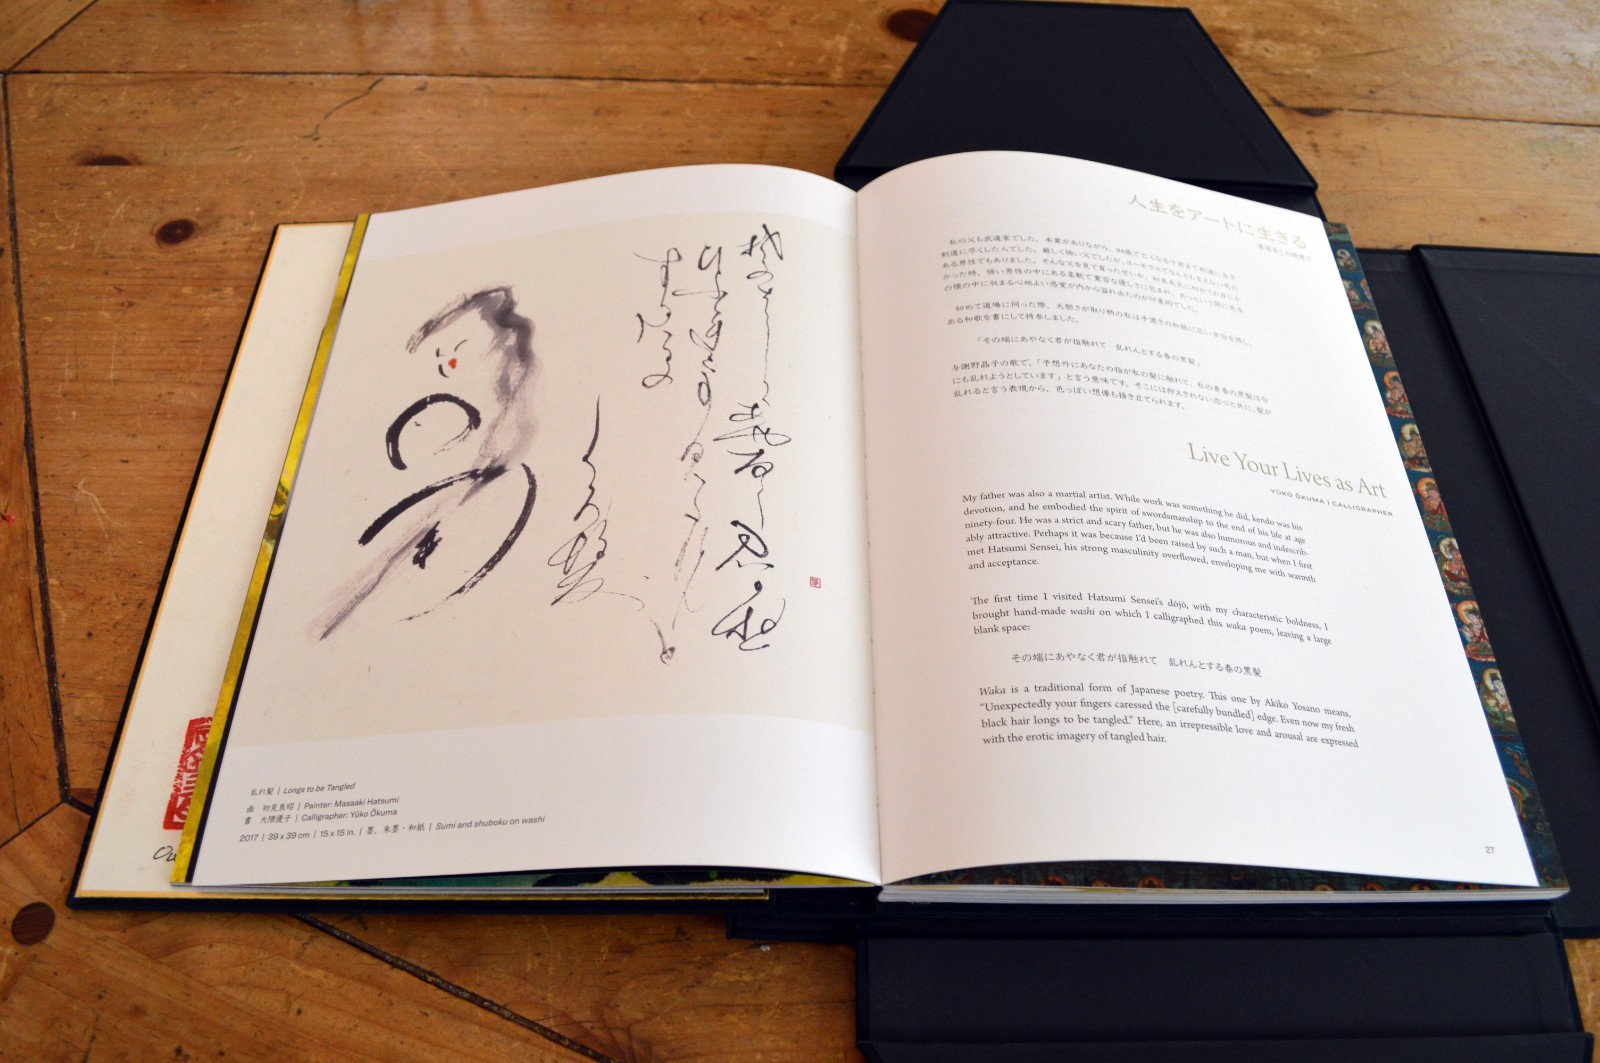 乱れ髪 | Longs to be Tangled
画 初見良昭 | Painter: Masaaki Hatsumi
書 大隈優子 | Calligrapher: Yūko Ōkuma
2017 | 39 x 39 cm | 15 x 15 in. | 墨、朱墨・和紙 | Sumi and shuboku on washi
人生をアートに生きる
私の父も武道家でした。本業がありながら、94歳で亡くなる寸前まで剣道に生き
剣道に尽くした人でした。厳しく怖い父でしたが、ユーモラスでなんとも言えない色の
ある男性でもありました。そんな父を見て育ったせいか、初見先生に初めてお会いし
かった時、強い男性の中にある柔軟で寛容な優しさに包まれ、あっという間に先生
の懐の中に収まる心地よい感覚が内から溢れ出たのが印象的でした。
初めて道場に伺った際、大胆さが取り柄の私は手漉きの和紙に広い余白を残し、
ある和歌を書にして持参しました。
「その端にあやなく君が指触れて 乱れんとする春の黒髪」
与謝野晶子の歌で、「予想外にあなたの指が私の髪に触れて、私の青春の黒髪は今
にも乱れようとしています」と言う意味です。そこには抑えきれない恋心と共に、髪が
乱れると言う表現から、色っぽい想像も掻き立てられます。
Live Your Lives as Art
YŪKO ŌKUMA | CALLIGRAPHER
My father was also a martial artist. While work was something he did, kendo was his
devotion, and he embodied the spirit of swordsmanship to the end of his life at age
ninety-four. He was a strict and scary father, but he was also humorous and indescrib-
ably attractive. Perhaps it was because I'd been raised by such a man, but when I first
met Hatsumi Sensei, his strong masculinity overflowed, enveloping me with warmth
and acceptance.
The first time I visited Hatsumi Sensei's dōjō, with my characteristic boldness, I
brought hand-made washi on which I calligraphed this waka poem, leaving a large
blank space:
その端にあやなく君が指触れて 乱れんとする春の黒髪
Waka is a traditional form of Japanese poetry. This one by Akiko Yosano means,
"Unexpectedly your fingers caressed the [carefully bundled] edge. Even now my fresh
black hair longs to be tangled." Here, an irrepressible love and arousal are expressed
with the erotic imagery of tangled hair.
27